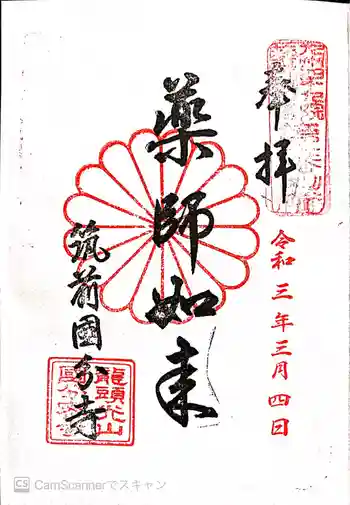 奉拝
令和三年三月四日
薬師如来
筑前國分寺
CS CamScannerでスキャン